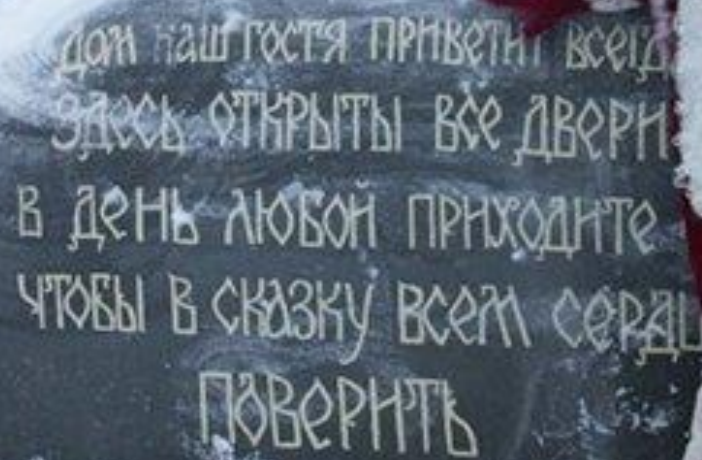 дом наш гостя приветит всегд
здесь открыты все двери
в день любой приходите
чтобы в сказку всем серд
поверить